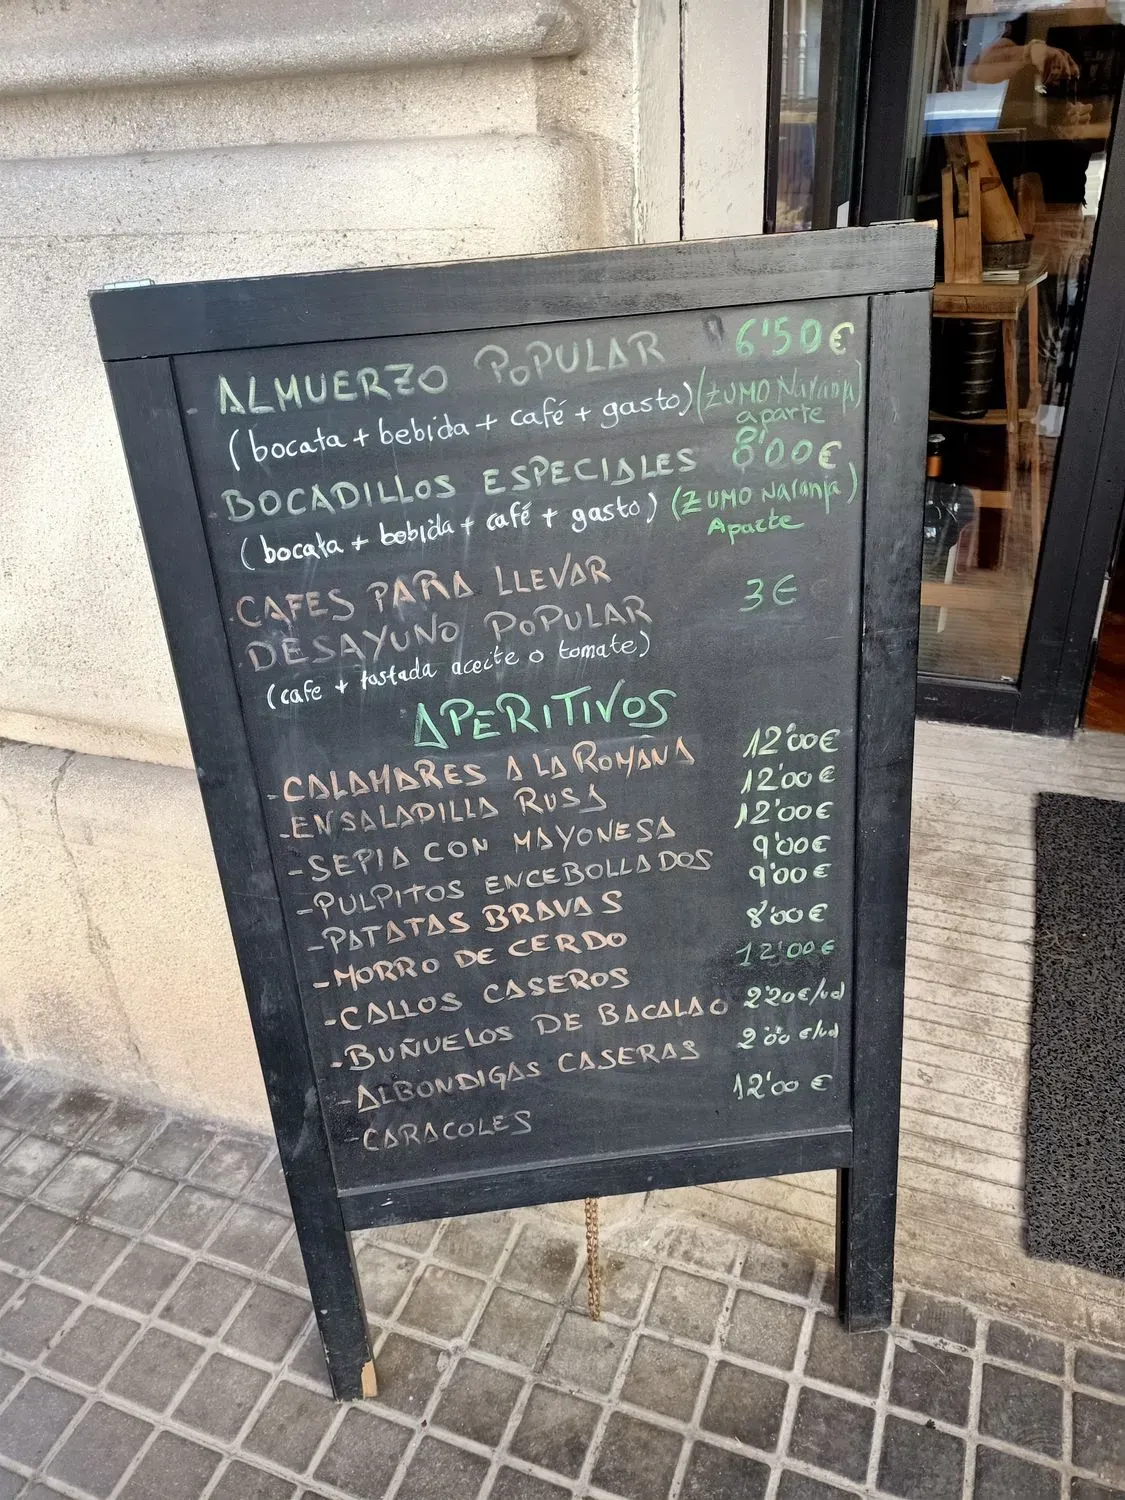 ALMUERZO POPULAR 6'50€
(bocata + bebida + café + gasto) (ZUMO Naranja)
aparte
BOCADILLOS ESPECIALES 8'00€
(bocata + bebida + café + gasto) (ZUMO Naranja)
Aparte
CAFES PARA LLEVAR
DESAYUNO POPULAR 3€
(cafe + tostada aceite o tomate)
APERITIVOS
-CALAMARES A LA ROMANA 12'00€
-ENSALADILLA RUSA 12'00€
-SEPIA CON MAYONESA 12'00€
-PULPITOS ENCEBOLLADOS 9'00€
-PATATAS BRAVAS 9'00€
-MORRO DE CERDO 8'00€
-CALLOS CASEROS 12'00€
-BUÑUELOS DE BACALAO 2'20€/ud
-ALBONDIGAS CASERAS 2'00€/ud
-CARACOLES 12'00€